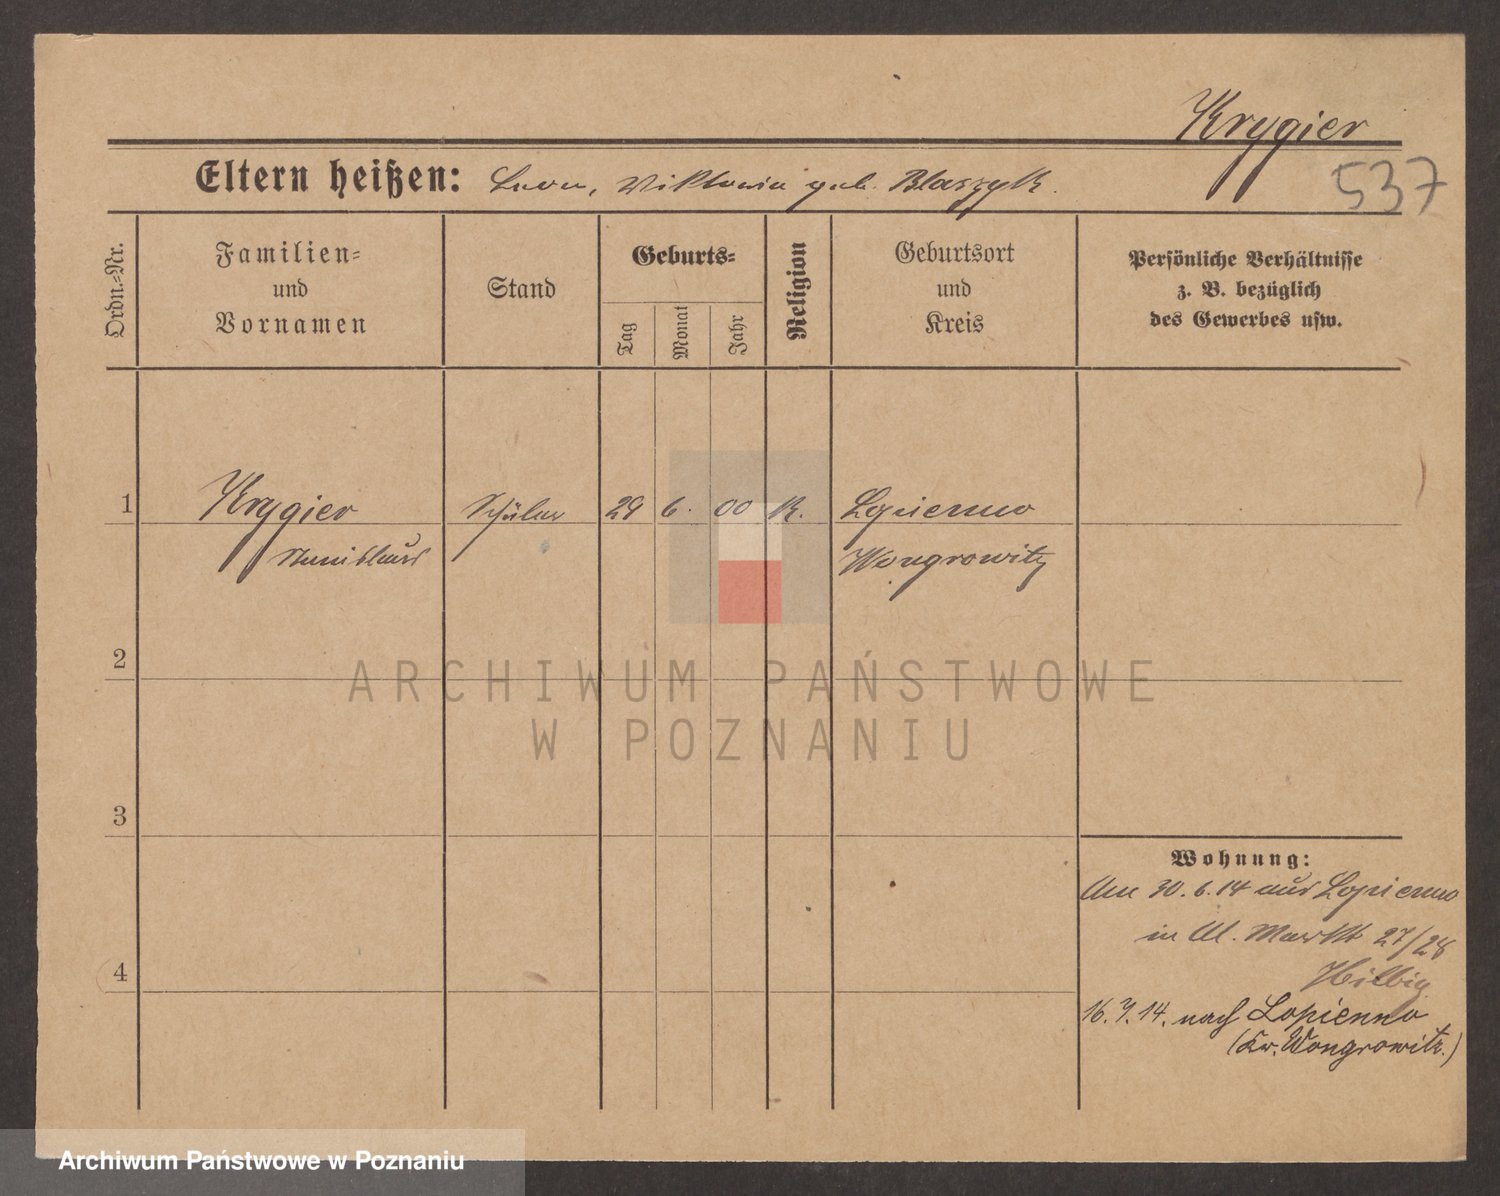 Krygier
537
Eltern heißen: Leon, Viktoria geb. Blaszyk.
Ordn.-Nr.
Familien-
und
Vornamen
Stand
Geburts-
Tag
Monat
Jahr
Religion
Geburtsort
und
Kreis
Persönliche Verhältnisse
z. B. bezüglich
des Gewerbes usw.
1
Krygier
Stanislaus
Schüler
29
6.
00
K.
Lopienno
Wongrowitz
2
3
4
Wohnung:
Am 30.6.14 aus Lopienno
in Al. Markt 27/28
Hilbig
16.7.14. nach Lopienno
(Kr. Wongrowitz.)
ARCHIWUM PAŃSTWOWE
W POZNANIU
Archiwum Państwowe w Poznaniu